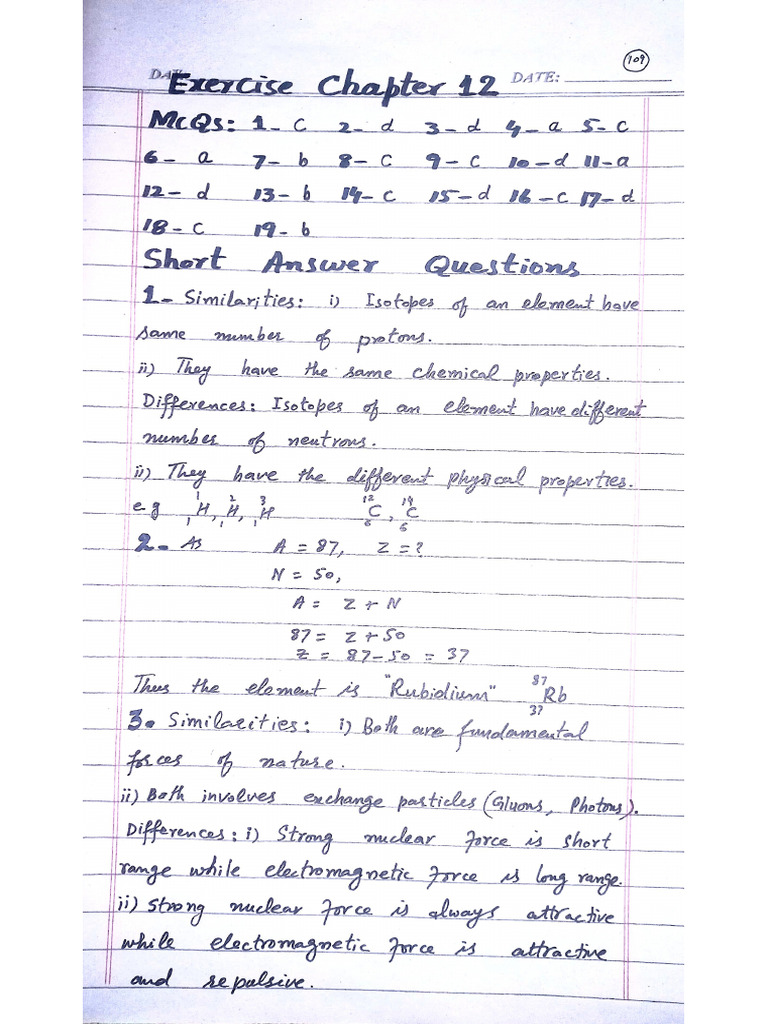 109
DATE:
Exercise Chapter 12
McQs: 1- c 2- d 3- d 4- a 5- c
6- a 7- b 8- c 9- c 10- d 11- a
12- d 13- b 14- c 15- d 16- c 17- d
18- c 19- b
Short Answer Questions
1- Similarities: i) Isotopes of an element have
same number of protons.
ii) They have the same chemical properties.
Differences: Isotopes of an element have different
number of neutrons.
ii) They have the different physical properties.
e g ¹₁H, ²₁H, ³₁H ¹²₆C, ¹⁴₆C
2- As A = 87, Z = ?
N = 50,
A = Z + N
87 = Z + 50
Z = 87 - 50 = 37
Thus the element is "Rubidium" ⁸⁷₃₇Rb
3. Similarities: i) Both are fundamental
forces of nature.
ii) Both involves exchange particles (Gluons, Photons).
Differences: i) Strong nuclear force is short
range while electromagnetic force is long range.
ii) Strong nuclear force is always attractive
while electromagnetic force is attractive
and repulsive.